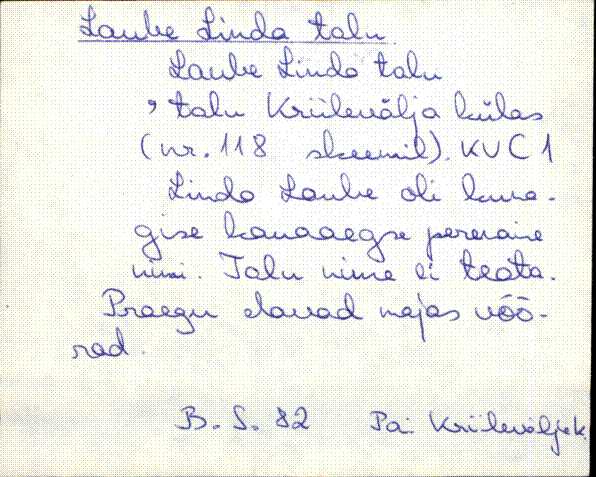 Laube Linda talu
Laube Linda talu
, talu Kriilevälja külas
(nr. 118 skeemil). KUC 1
Linda Laube oli kuna-
gise kauaaegse perenaise
nimi. Talu nime ei teata.
Praegu elavad majas võõ-
rad.
B. S. 82 Pai Kriilevälja k.